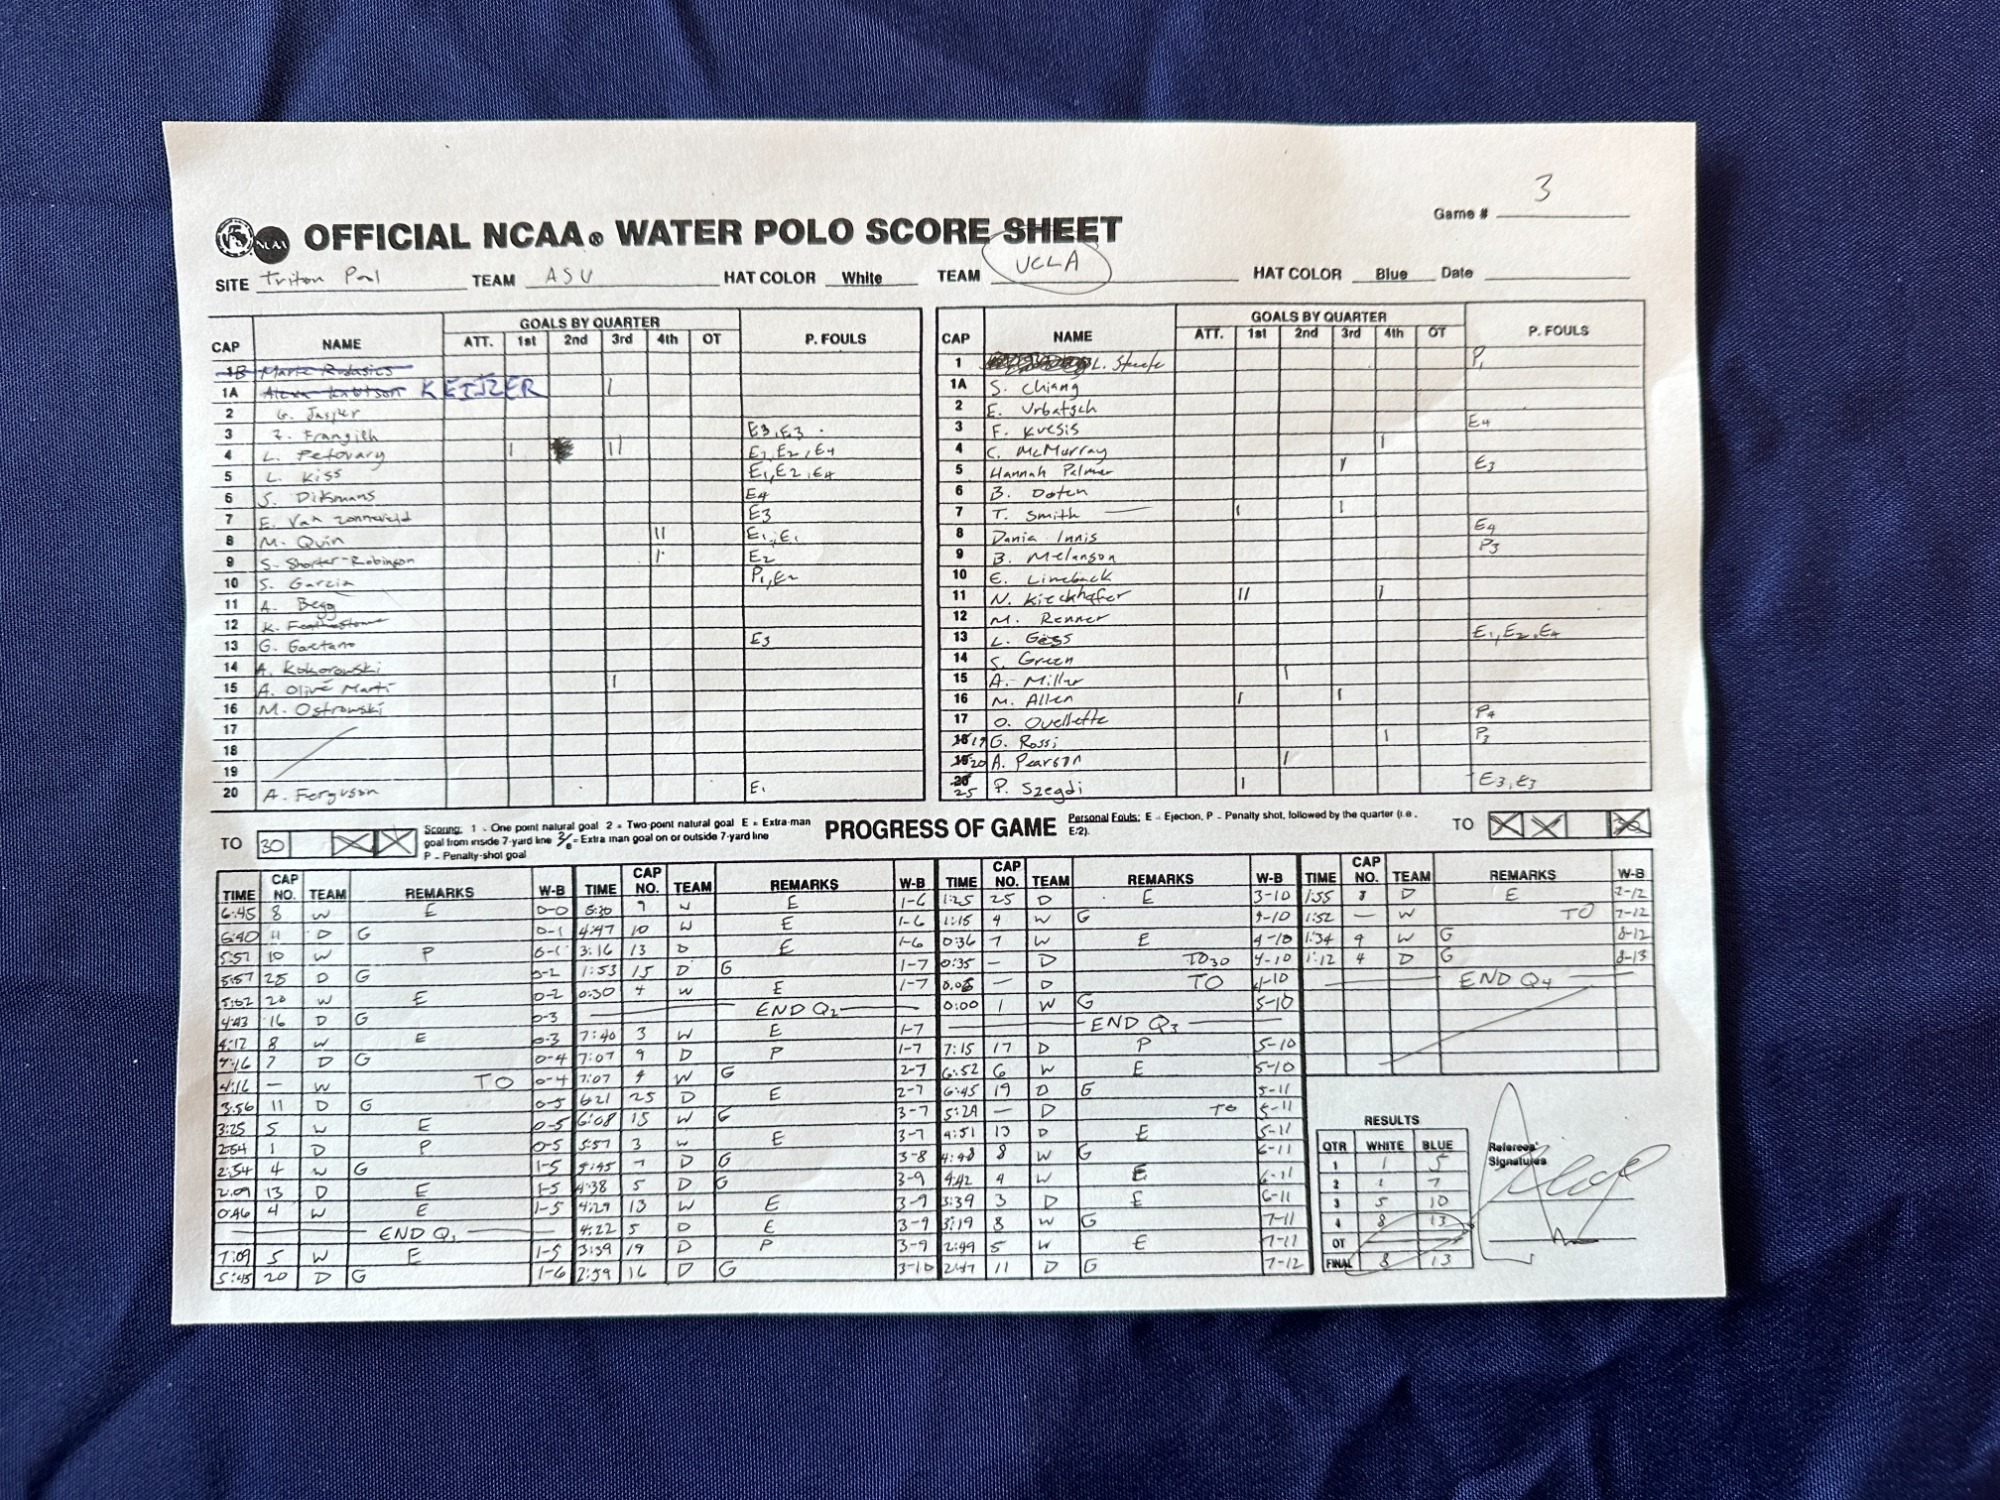 Game # 3
NCAA OFFICIAL NCAA® WATER POLO SCORE SHEET
SITE Triton Pool TEAM ASU HAT COLOR White TEAM UCLA HAT COLOR Blue Date
GOALS BY QUARTER GOALS BY QUARTER
CAP NAME ATT. 1st 2nd 3rd 4th OT P. FOULS CAP NAME ATT. 1st 2nd 3rd 4th OT P. FOULS
1B 1 L. Steele P1
1A KEIJZER I 1A S. Chiang
2 G. Jasper 2 E. Urbatsch
3 Z. Frangieh E3, E3 3 F. Kvesis E4
4 L. Petovary I II E1, E2, E4 4 C. McMurray I
5 L. Kiss E1, E2, E4 5 Hannah Palmer I E3
6 S. Dirkmans E4 6 B. Doten
7 E. Van Zonneveld E3 7 T. Smith I I
8 M. Quin II E1, E1 8 Dania Innis E4
9 S. Shorter-Robinson I E2 9 B. Melanson P3
10 S. Garcia P1, E2 10 E. Lineback
11 A. Begg 11 N. Kieckhafer II I
12 K. Featherstone 12 M. Renner
13 G. Gaetano E3 13 L. Gess E1, E2, E4
14 A. Kokorowski 14 S. Green
15 A. Olivé Marti I 15 A. Miller I
16 M. Ostrowski 16 M. Allen I I
17 17 O. Ouellette P4
18 18 19 G. Rossi I P3
19 19 20 A. Pearson I
20 A. Ferguson E1 20 25 P. Szegdi I E3, E3
TO 30 Scoring: 1 - One point natural goal 2 = Two point natural goal E = Extra-man PROGRESS OF GAME Personal Fouls: E - Ejection, P - Penalty shot, followed by the quarter (i.e. TO 30
goal from inside 7-yard line 2/E = Extra man goal on or outside 7-yard line E/2).
P - Penalty-shot goal
TIME CAP NO. TEAM REMARKS W-B TIME CAP NO. TEAM REMARKS W-B TIME CAP NO. TEAM REMARKS W-B TIME CAP NO. TEAM REMARKS W-B
6:45 8 W E 0-0 5:30 9 W E 1-6 1:25 25 D E 3-10 1:55 8 D E 7-12
6:40 11 D G 0-1 4:47 10 W E 1-6 1:15 4 W G 4-10 1:52 — W TO 7-12
5:57 10 W P 0-1 3:16 13 D E 1-6 0:36 7 W E 4-10 1:34 9 W G 8-12
5:57 25 D G 0-2 1:53 15 D G 1-7 0:35 — D TO30 4-10 1:12 4 D G 8-13
5:02 20 W E 0-2 0:30 4 W E 1-7 0:08 — D TO 4-10 END Q4
4:43 16 D G 0-3 END Q2 0:00 1 W G 5-10
4:17 8 W E 0-3 7:40 3 W E 1-7 END Q3
4:16 7 D G 0-4 7:07 9 D P 1-7 7:15 17 D P 5-10
4:16 — W TO 0-4 7:07 4 W G 2-7 6:52 6 W E 5-10
3:56 11 D G 0-5 6:21 25 D E 2-7 6:45 19 D G 5-11
3:25 5 W E 0-5 6:08 15 W G 3-7 5:24 — D TO 5-11
2:54 1 D P 0-5 5:57 3 W E 3-7 4:51 13 D E 5-11
2:54 4 W G 1-5 5:45 7 D G 3-8 4:48 8 W G 6-11
2:09 13 D E 1-5 4:38 5 D G 3-9 4:42 4 W E 6-11
0:46 4 W E 1-5 4:29 13 W E 3-9 3:39 3 D E 6-11
END Q1 4:22 5 D E 3-9 3:19 8 W G 7-11
7:09 5 W E 1-5 3:39 19 D P 3-9 2:49 5 W E 7-11
5:45 20 D G 1-6 2:59 16 D G 3-10 2:47 11 D G 7-12
RESULTS
QTR WHITE BLUE
1 1 5
2 1 7
3 5 10
4 8 13
OT
FINAL 8 13
Referees'
Signatures